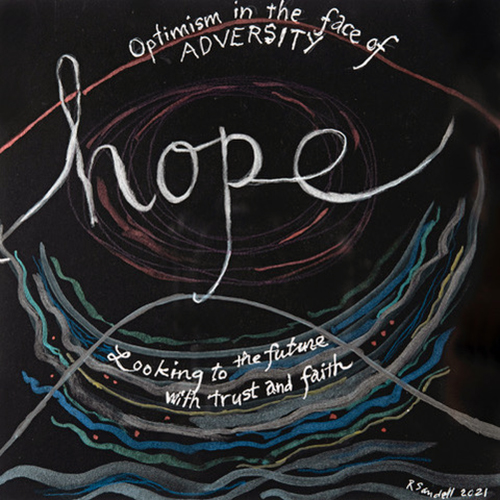 Optimism in the face of
ADVERSITY
hope
Looking to the future
with trust and faith
R Sandell 2021